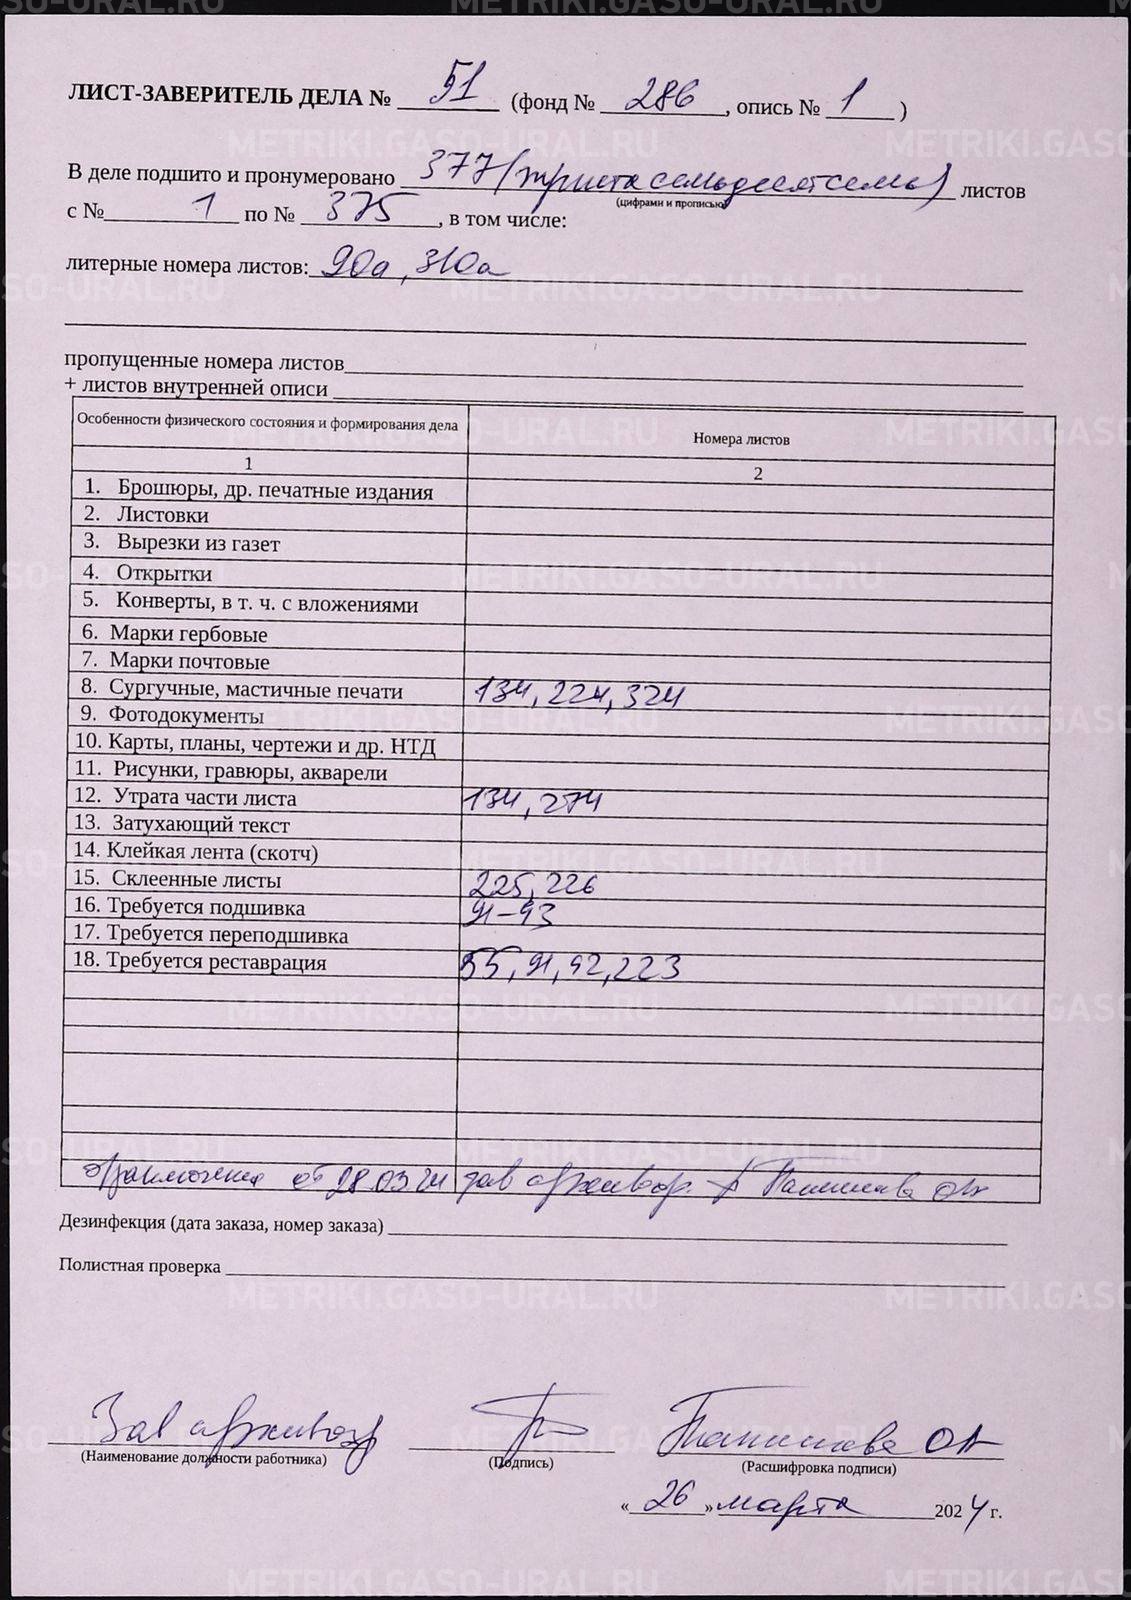 ЛИСТ-ЗАВЕРИТЕЛЬ ДЕЛА № 51 (фонд № 286, опись № 1 )
В деле подшито и пронумеровано 377 (триста семьдесят семь) листов
(цифрами и прописью)
с № 1 по № 375, в том числе:
литерные номера листов: 90а, 310а
пропущенные номера листов
+ листов внутренней описи
Особенности физического состояния и формирования дела Номера листов
1 2
1. Брошюры, др. печатные издания
2. Листовки
3. Вырезки из газет
4. Открытки
5. Конверты, в т. ч. с вложениями
6. Марки гербовые
7. Марки почтовые
8. Сургучные, мастичные печати 134, 224, 324
9. Фотодокументы
10. Карты, планы, чертежи и др. НТД
11. Рисунки, гравюры, акварели
12. Утрата части листа 134, 274
13. Затухающий текст
14. Клейкая лента (скотч)
15. Склеенные листы 225, 226
16. Требуется подшивка 91-93
17. Требуется переподшивка
18. Требуется реставрация 55, 91, 92, 223
от 28.03.24 зав архивохр.
Дезинфекция (дата заказа, номер заказа)
Полистная проверка
Зав архивохр
(Наименование должности работника) (Подпись) (Расшифровка подписи)
« 26 » марта 2024 г.
METRIKI.GASO-URAL.RU